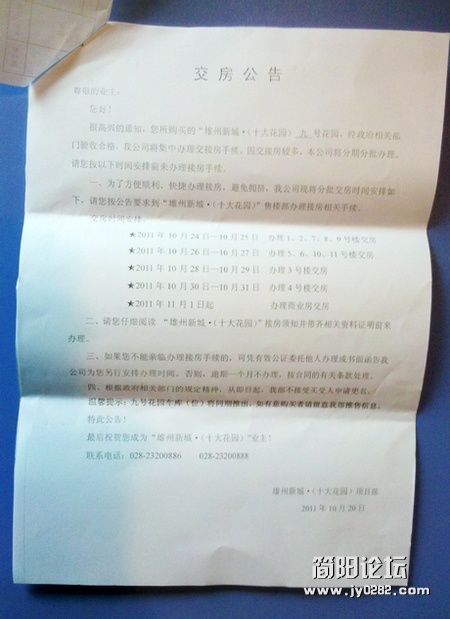 交房公告
尊敬的业主：
您好！
很高兴的通知，您所购买的“雄州新城·（十大花园）九号花园，经政府相关部
门验收合格，我公司将集中办理交接房手续，因交接房较多，本公司将分期分批办理。
请您按以下时间安排前来办理接房手续。
一、为了方便顺利、快捷办理接房，避免拥挤，我公司现将分批交房时间安排如
下，请您按公告要求到“雄州新城·（十大花园）”售楼部办理接房相关手续。
交房时间安排：
★2011年10月24日—10月25日 办理1、2、7、8、9号楼交房
★2011年10月26日—10月27日 办理5、6、10、11号楼交房
★2011年10月28日—10月29日 办理3号楼交房
★2011年10月30日—10月31日 办理4号楼交房
★2011年11月1日起 办理商业房交房
二、请您仔细阅读“雄州新城·（十大花园）”接房须知并带齐相关资料证明前来
办理。
三、如果您不能亲临办理接房手续的，可凭有效公证委托他人办理或书面函告我
公司为您另行安排办理时间。否则，逾期一个月不办理，按合同的有关条款处理。
四、根据政府相关部门的规定精神，从即日起，我部不接受买受人申请更名。
温馨提示：九号花园车库（位）将同期推出，如有意购买者请留意我部推售信息。
特此公告！
最后祝贺您成为“雄州新城·（十大花园）”业主！
联系电话：028-23200886 028-23200888
雄州新城·（十大花园）项目部
2011年10月20日
简阳论坛
www.jy0282.com